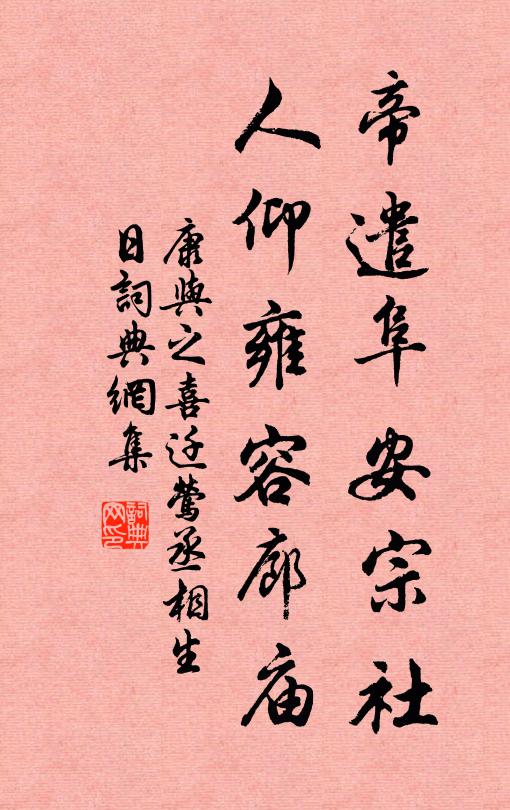 帝遣阜安宗社
人仰雍容廊庙
康與之喜迁莺丞相生
日詞典網集
詞典
网印